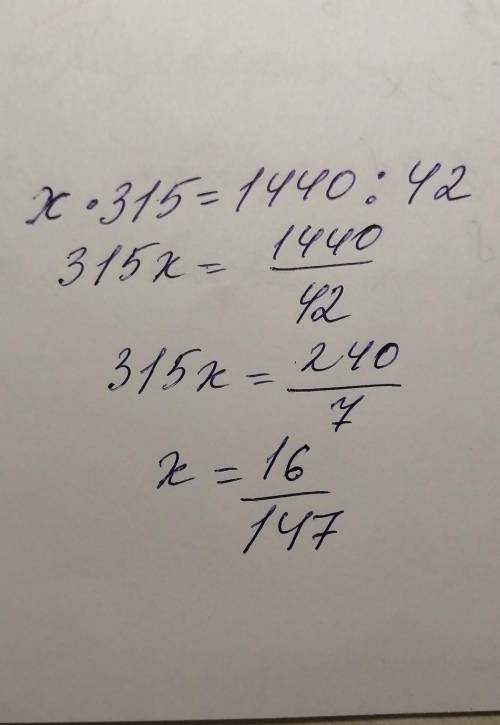 x · 315 = 1440 : 42
315x = 1440/42
315x = 240/7
x = 16/147